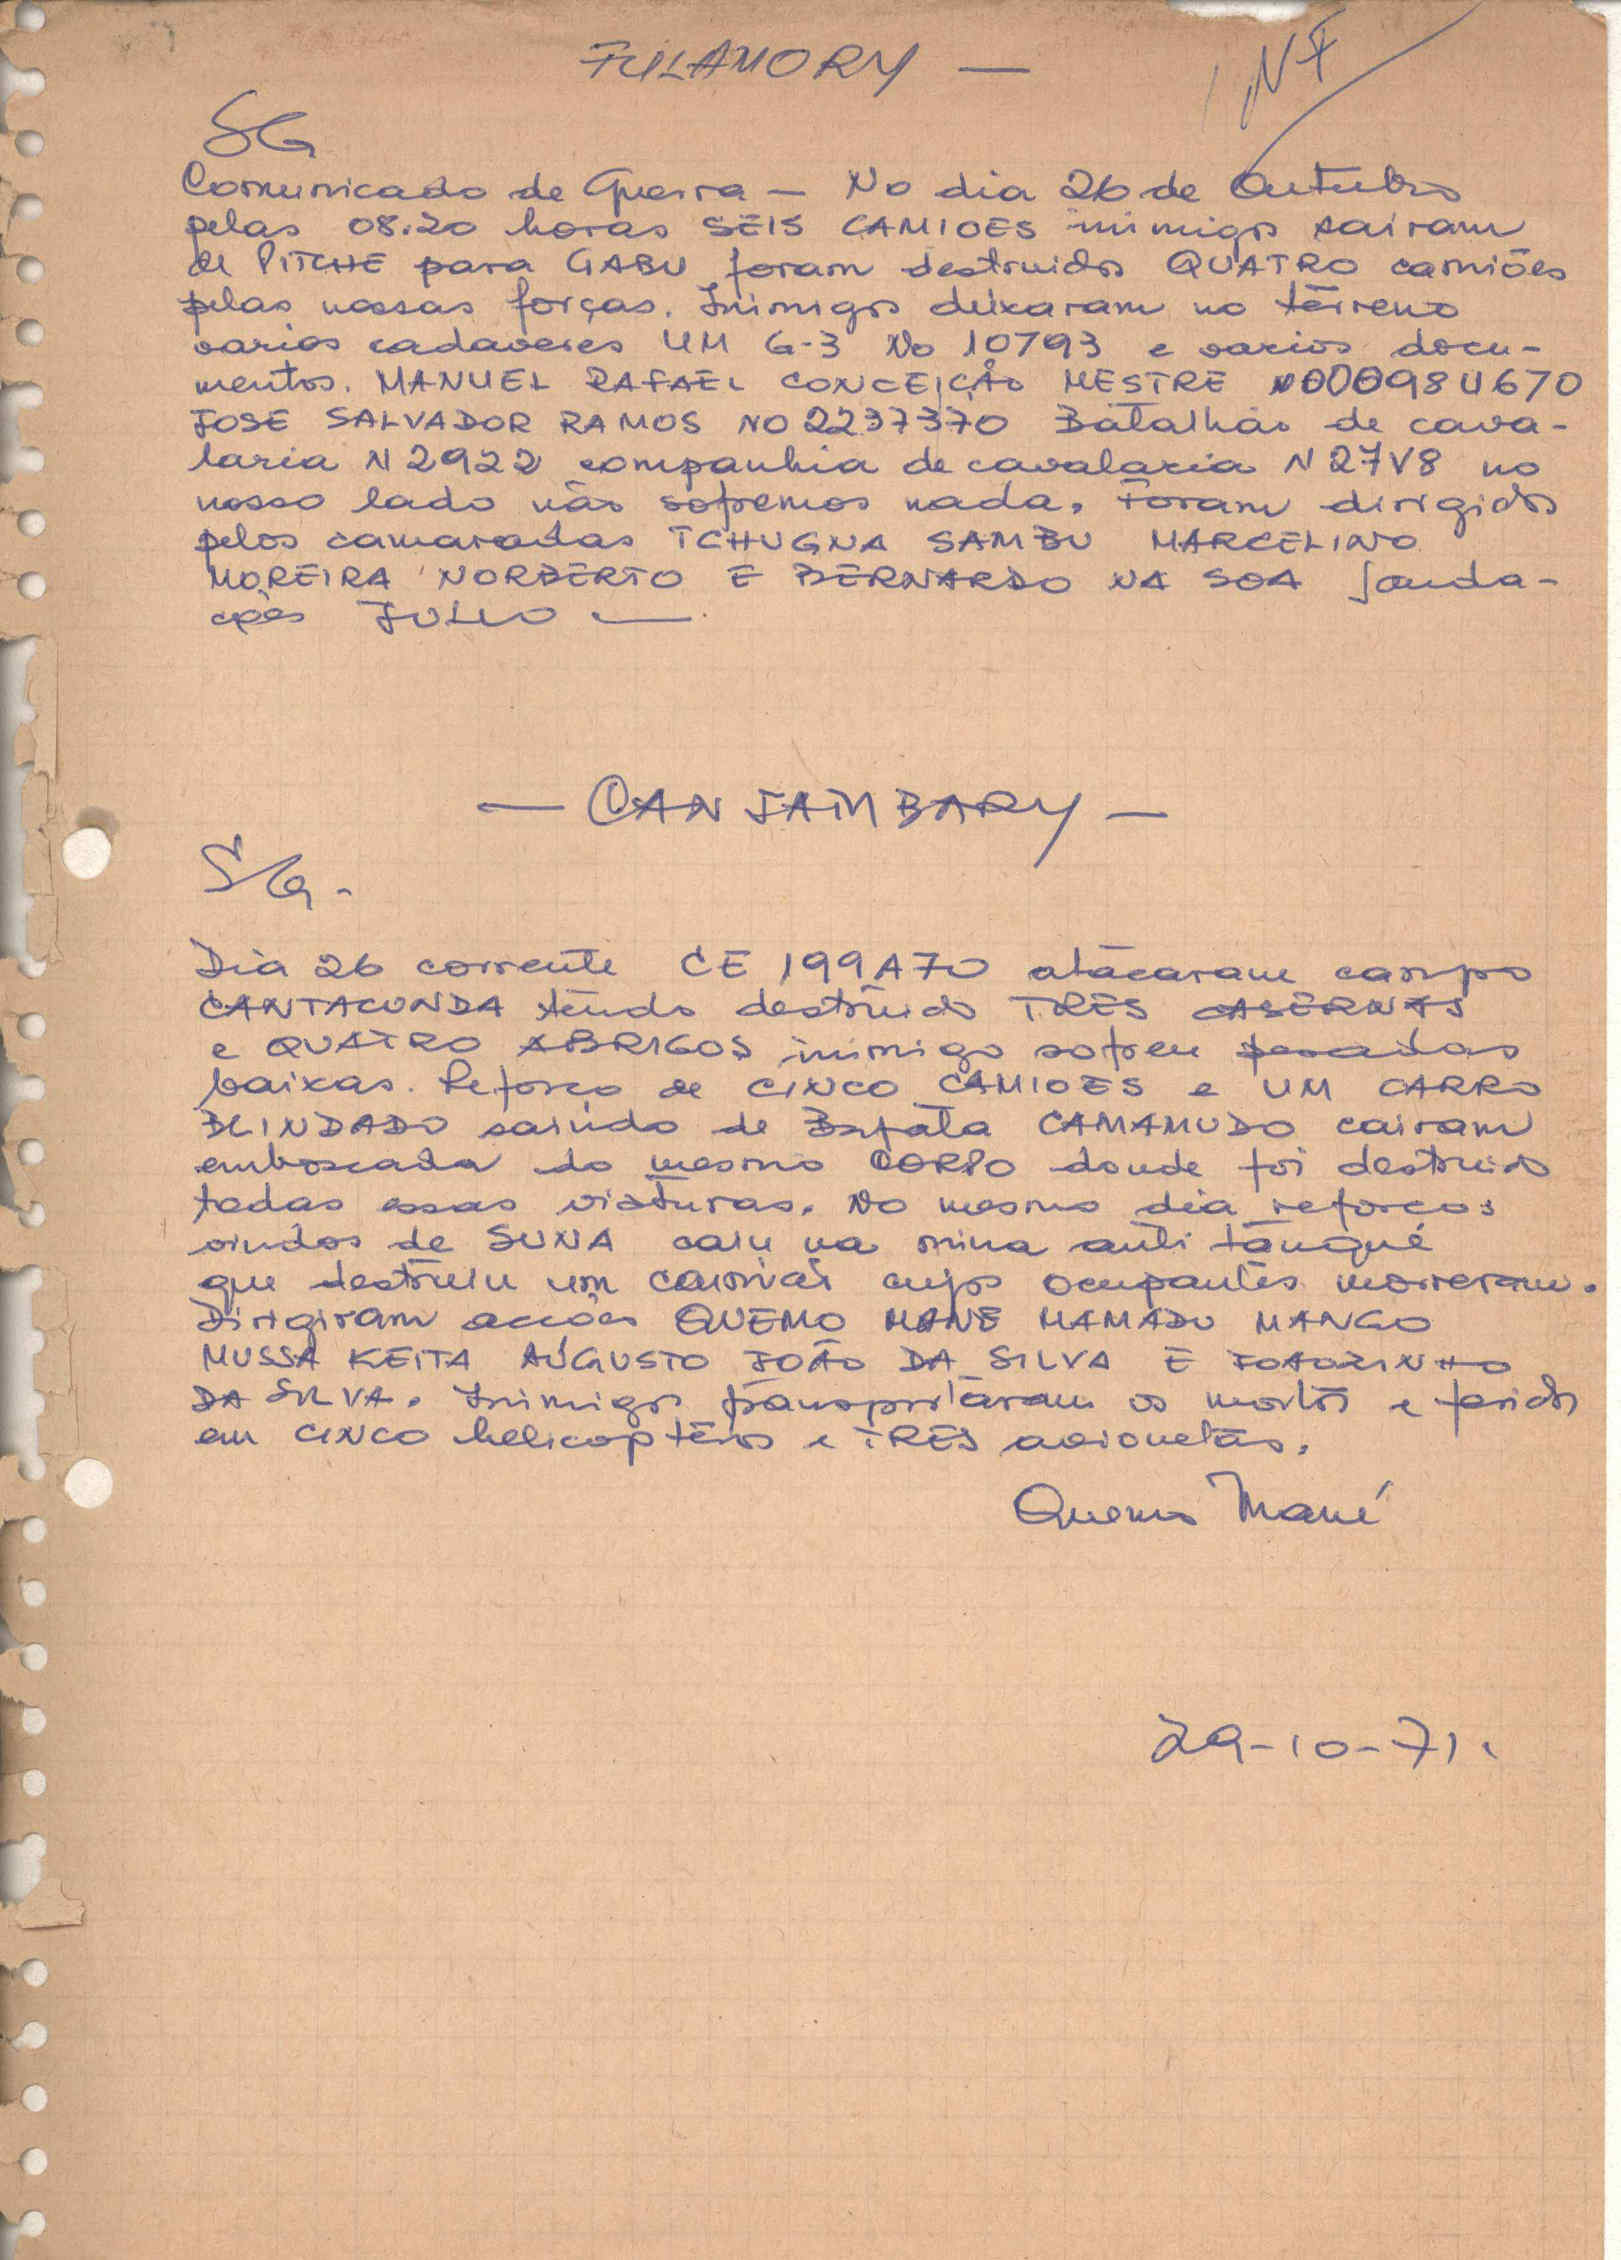 FULAMORY —
SG
Comunicado de Guerra — No dia 26 de Outubro
pelas 08.20 horas SEIS CAMIOES inimigos sairam
de PITCHE para GABU foram destruidos QUATRO camiões
pelas nossas forças. Inimigos deixaram no terreno
varios cadaveres UM G-3 No 10793 e varios docu-
mentos. MANUEL RAFAEL CONCEIÇÃO MESTRE
JOSE SALVADOR RAMOS NO 2237370 Batalhão de cava-
laria N 2922 companhia de cavalaria N 27V8 no
nosso lado não sofremos nada. Foram dirigidos
pelos camaradas TCHUGNA SAMBU MARCELINO
MOREIRA NORBERTO E BERNARDO NA SOA Sauda-
ções JULIO —
— CANJAMBARY —
SG -
Dia 26 corrente CE 199A70 atacaram campo
CANTACUNDA tendo destruido TRES CASERNAS
e QUATRO ABRIGOS inimigo sofreu pesadas
baixas. Reforço de CINCO CAMIOES e UM CARRO
BLINDADO saindo de Bafata CAMAMUDO cairam
emboscada do mesmo CORPO donde foi destruido
todas essas viaturas. No mesmo dia reforços
vindos de SUNA caiu na mina anti tanque
que destruiu um camião cujos ocupantes morreram.
Dirigiram acções QUEMO MANE MAMADU MANGO
MUSSA KEITA AUGUSTO JOÃO DA SILVA E JOAOZINHO
DA SILVA. Inimigos transportaram os mortos e feridos
em CINCO helicopteros e TRES avionetas.
Quemo Mané
29-10-71.